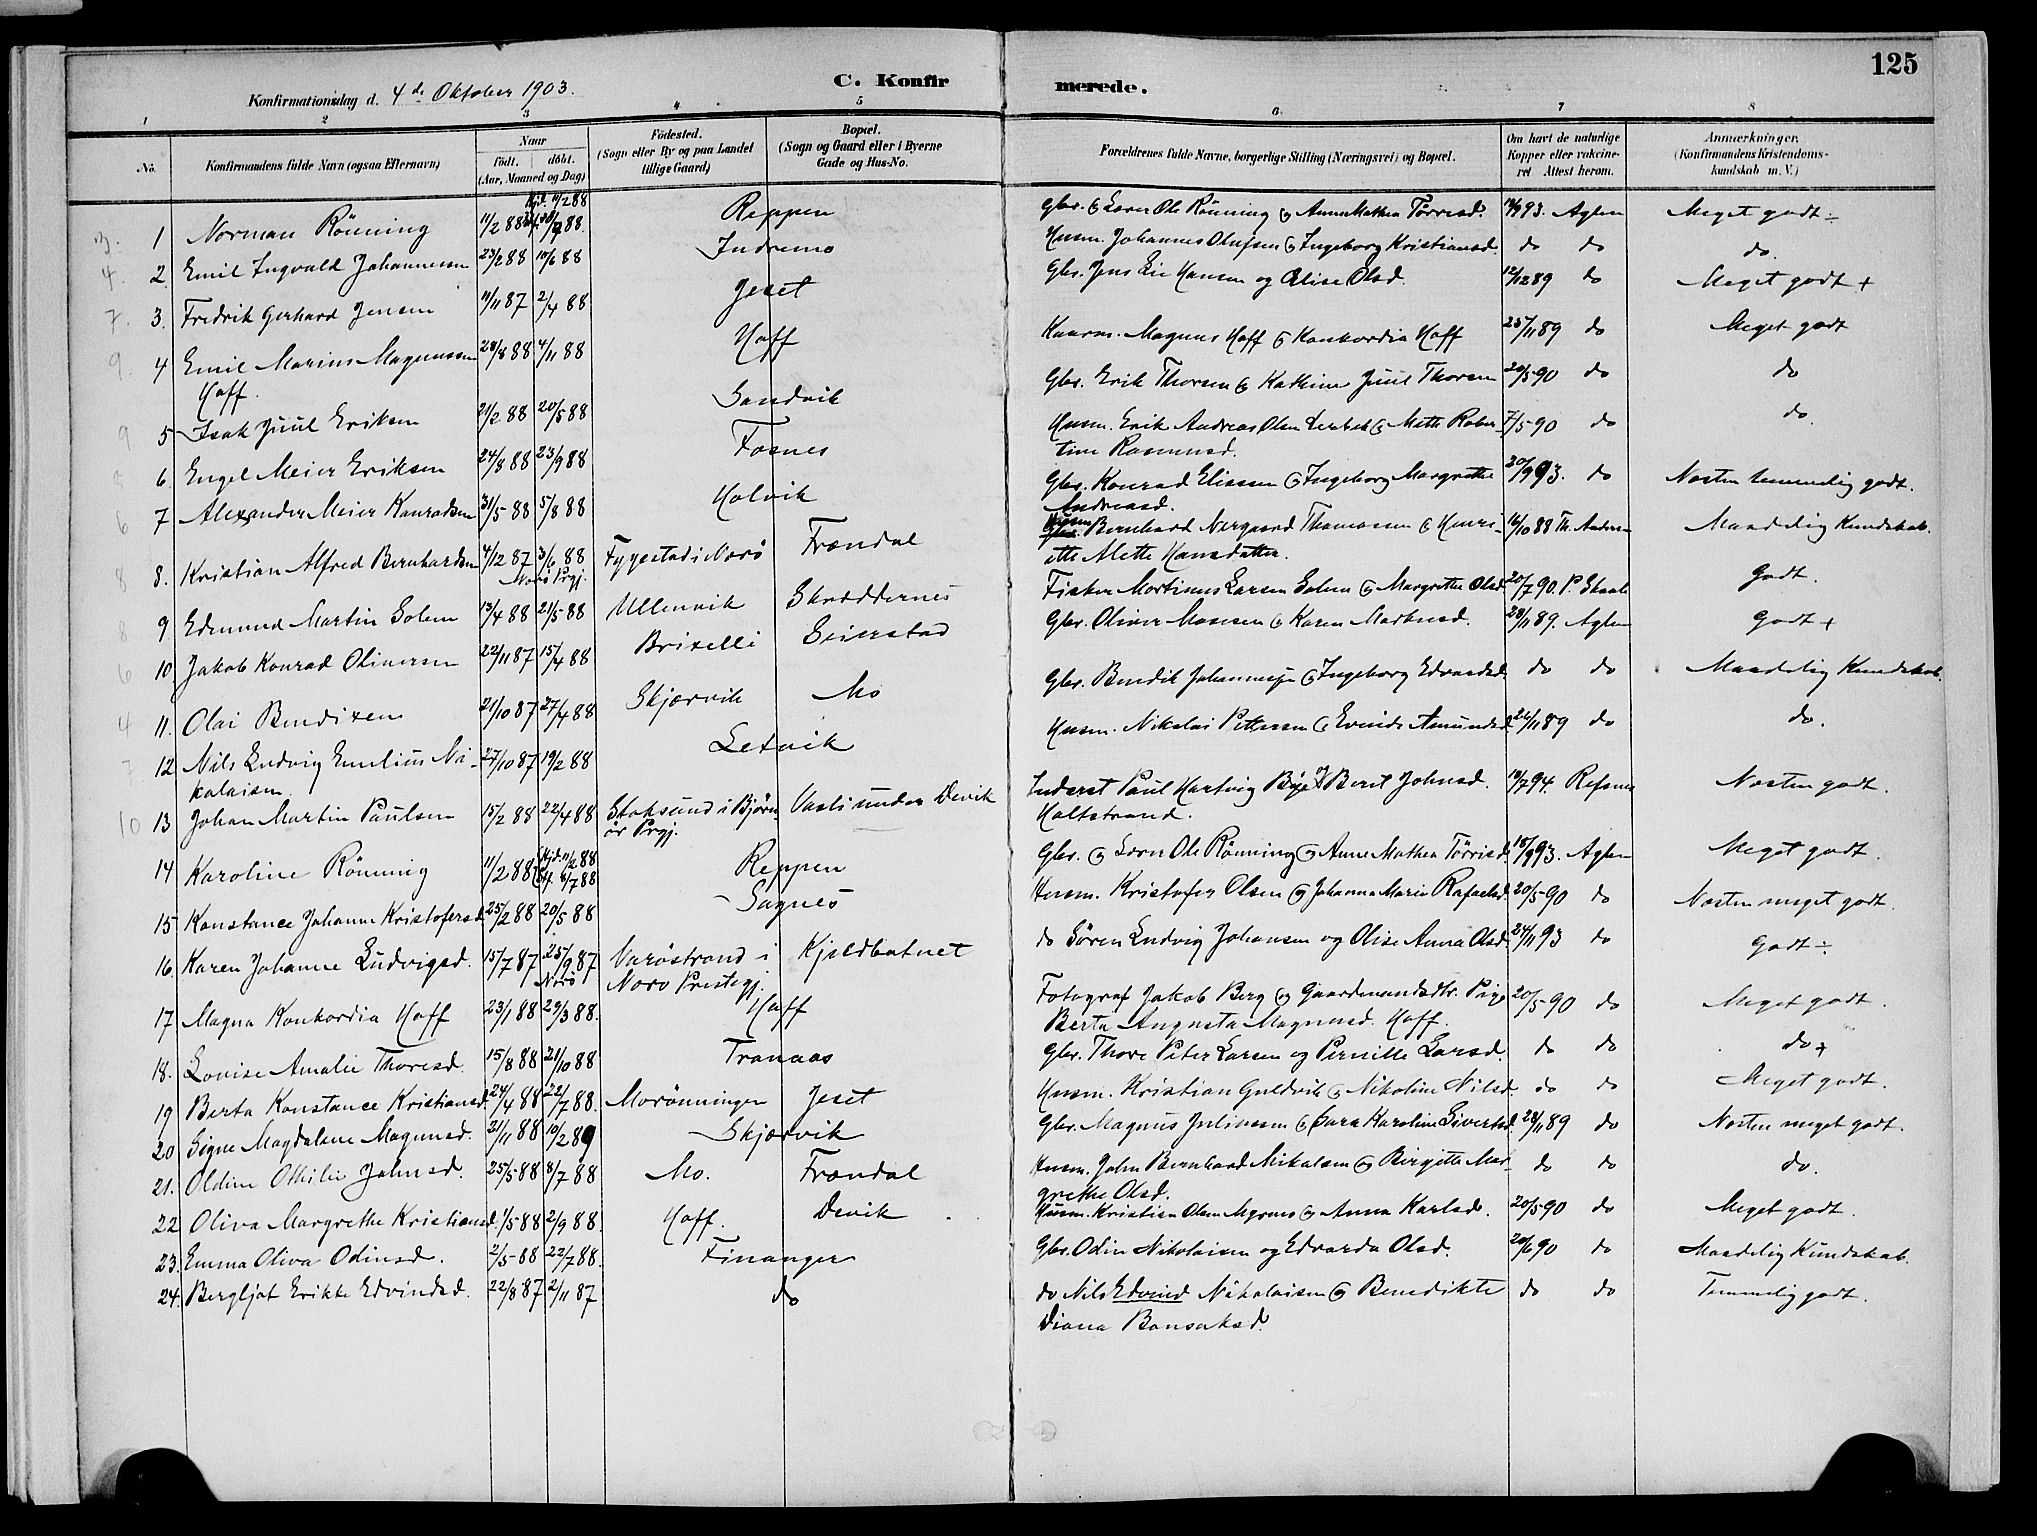 125
C. Konfirmerede.
Konfirmationsdag d. 4de Oktober 1903.
1 2 3 4 5 6. 7 8
No. Konfirmandens fulde Navn (ogsaa Efternavn) Naar født. døbt. (Aar, Maaned og Dag) Fødested. (Sogn eller By og paa Landet tillige Gaard) Bopæl. (Sogn og Gaard eller i Byerne Gade og Hus-No. Forældrenes fulde Navne, borgerlige Stilling (Næringsvei) og Bopæl. Om havt de naturlige Kopper eller vakcineret Attest herom. Anmærkninger. (Konfirmandens Kristendomskundskab m. V.)
1 Norman Rönning 11/2 88 Hjd. 11/2 88 Reppen Gbr. & Lærer Ole Rönning & Anna Mathea Törrisd. 93. Aglen Meget godt ÷
2 Emil Ingvald Johannesen 23/2 88 10/6 88 Indremo Husm. Johannes Olufsen & Ingeborg Kristiansd. do do do.
3. Fredrik Gerhard Jensen 11/11 87 2/4 88 Jeset Gbr. Jens Lie Hansen og Elise Olsd. 12/12 89 do Meget godt +
4 Emil Marius Magnussen Hoff. 28/8 88 4/11 88 Hoff Kaarm. Magnus Hoff & Konkordia Hoff 25/11 89 do Meget godt
5 Isak Juul Eriksen 21/2 88 20/5 88 Sandvik Gbr. Erik Thorsen & Kathine Juul Thorsen 20/5 90 do do
6. Engel Meier Eriksen 24/8 88 23/9 88 Fosnes Husm. Erik Andreas Olsen & Mette Robertine Rasmusd. 7/5 90 do do.
7 Alexander Meier Konradsen 31/5 88 5/8 88 Holvik Gbr. Konrad Eliassen & Ingeborg Margrethe Andreasd. 20/9 93. do Næsten temmelig godt.
8. Kristian Alfred Bernhardsen 4/12 87 3/6 88 Nærö Prgj. Fygestad i Nærö Frændal Husm Bernhard Nergaard Thomassen & Henriette Mette Hansdatter. 16/10 88 Th. Anders. Maadelig Kundskab.
9 Edmund Martin Solem 13/4 88 21/5 88 Ullenvik Skræddernes Fisker Mortinus Larsen Solem & Margrethe Olsd. 20/7 90. P. Skaale Godt.
10 Jakob Konrad Oliversen 22/11 87 15/4 88 Brixelli Seierstad Gbr. Oliver Mosesen & Karen Markusd. 28/11 89. Aglen Godt +
11. Olai Bendixen 21/10 87 27/4 88 Skjærvik Mo Gbr. Bendik Johannesen & Ingeborg Edvardsd. do do Maadelig Kundskab.
12 Nils Ludvig Emelius Nikolaisen. 27/10 87 19/2 88 Setvik Husm. Nikolai Pettersen & Amundsd. 26/11 89 do do.
13 Johan Martin Paulsen 15/2 88 22/4 88 Stoksund i Björnör Prgj. Vasli under Devik Inderst Paul Hartvig & Berit Johnsd. Holtstrand. 19/7 94. Refsnes Næsten godt.
14 Karoline Rönning 11/2 88 Hjd. 11/2 88 7/88 Reppen Gbr. & Lærer Ole Rönning & Anne Mathea Törrisd. 18/9 93. Aglen Meget godt.
15 Konstance Johanne Kristofersd. 25/2 88 20/5 88 Sagnes Husm. Kristofer Olsen & Johanna Marie Rafaelsd. 20/5 90 do Næsten meget godt.
16. Karen Johanne Ludvigsd. 15/7 87 25/9 87 Nærö Varöstrand i Nærö Prestegj. Kjeldbotnet do Sören Ludvig Johansen og Olise Anna Olsd. 24/11 93 do Godt ÷
17 Magna Konkordia Hoff 23/1 88 29/3 88. Hoff Fotograf Jakob Berg & Gaardmandsdtr. Pige Berta Augusta Magnusd. Hoff. 20/5 90 do Meget godt.
18. Lovise Amalie Thoresd. 15/8 88 21/10 88 Tranaas Gbr. Thore Peter Larsen og Pernille Larsd. do do do +
19 Berta Konstance Kristiansd. 24/4 88 22/7 88. Morönningen Jeset Husm. Kristian Guldvik & Nikoline Nilsd. do do Meget godt.
20 Signe Magdalene Magnusd. 2/11 88 10/2 89 Skjærvik Gbr. Magnus Julinssen & Sara Karoline Sivertsd. 28/11 89 do Næsten meget godt.
21. Oldine Othilie Johnsd. 25/5 88 8/7 88 Mo. Frændal Husm. John Bernhard Mikalsen & Birgitte Margrethe Olsd. do do do.
22 Oliva Margrethe Kristiansd. 1/5 88 2/9 88. Hoff. Devik Husm. Kristian Olsen & Anna Karlsd. 20/5 90 do Meget godt.
23. Emma Oliva Odinsd. 2/5 88 22/7 88. Finanger Gbr. Odin Nikolaisen og Edvarda Olsd. 20/6 90 do Maadelig Kundskab.
24. Bergljot Erikke Edvindsd. 22/8 87 2/11 87 do do Nils Edvind Nikolaisen & Benedikte Diana Bonsaksd. do do Temmelig godt.